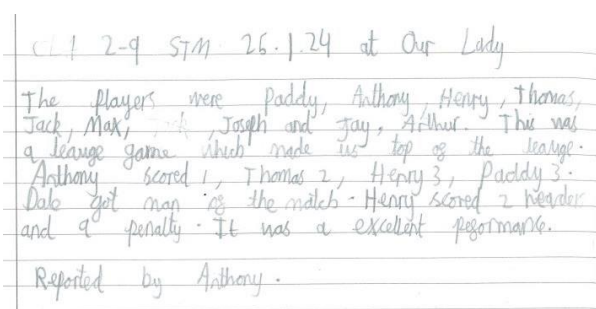 CLI 2-9 STM 26.1.24 at Our Lady
The players were Paddy, Anthony, Henry, Thomas,
Jack, Max, , Joseph and Jay, Arthur. This was
a leauge game which made us top of the leauge.
Anthony scored 1, Thomas 2, Henry 3, Paddy 3.
Dale got man of the match. Henry scored 2 header
and a penalty. It was a excellent pesormance.
Reported by Anthony.